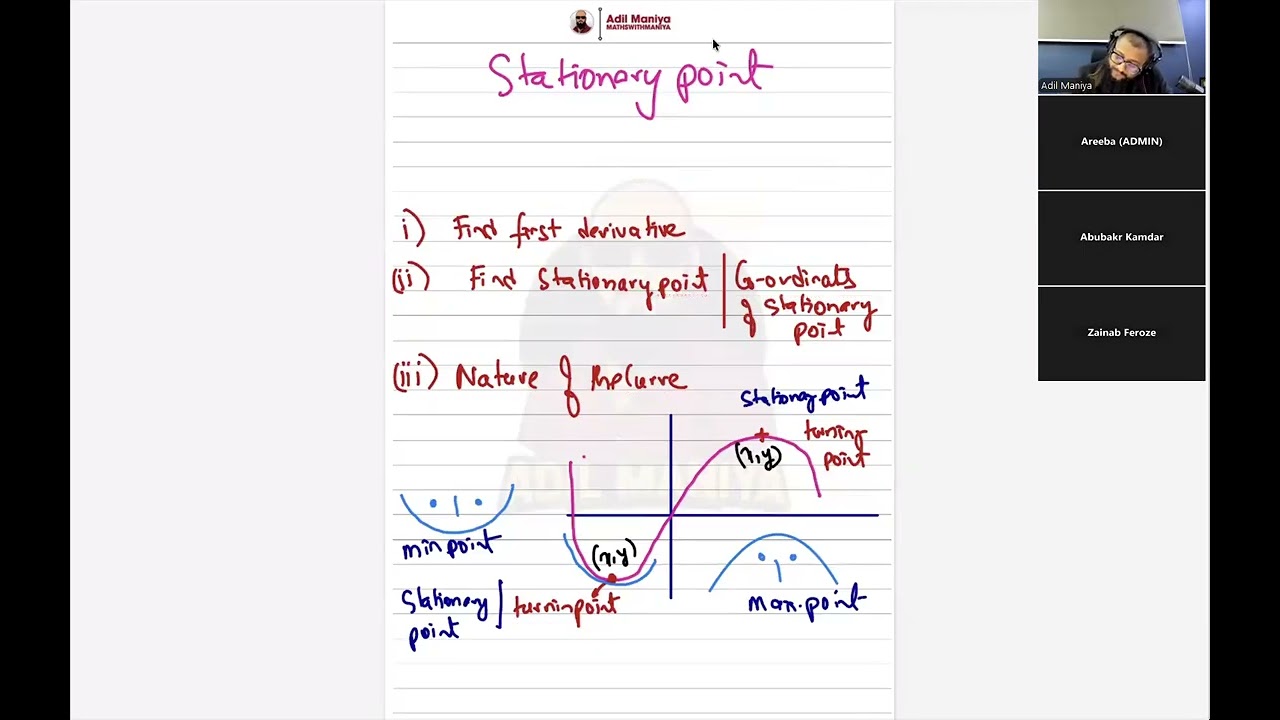 Adil Maniya
MATHSWITHMANIYA
Stationary point
i) Find first derivative
(ii) Find Stationary point | Co-ordinates
of stationary
point
(iii) Nature of the Curve
Stationary point
turning
point
(x,y)
(x,y)
min point
Stationary
point
turnin point
max. point
ADIL MANIYA
Adil Maniya
Areeba (ADMIN)
Abubakr Kamdar
Zainab Feroze